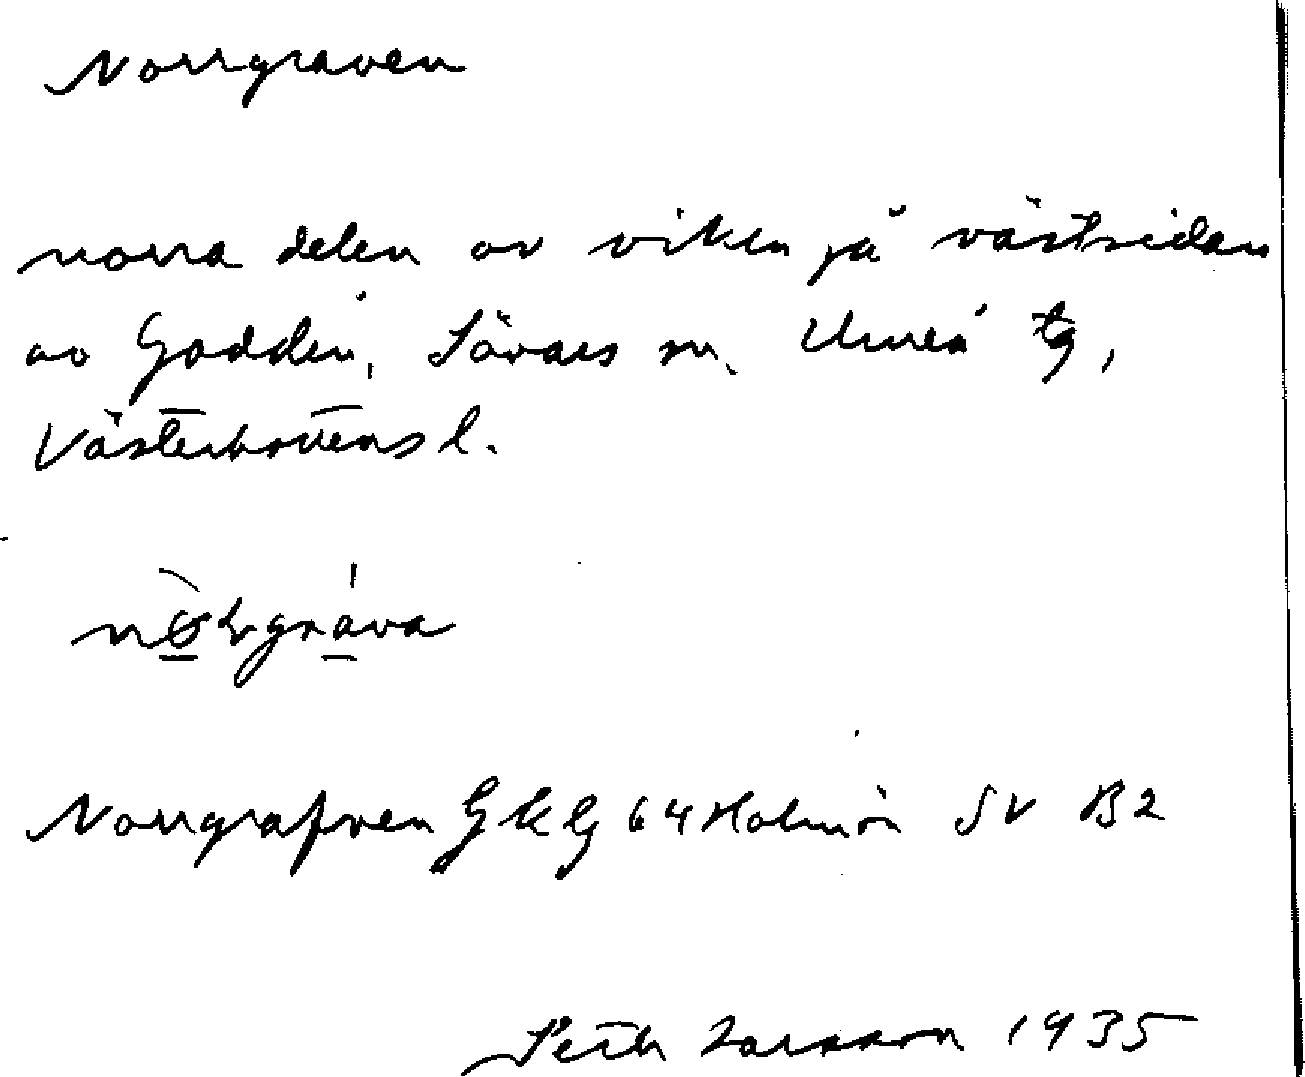 Norrgraven
norra delen av viken på västsidan
av Gadden, Sävars sn. Umeå tg,
Västerbottens l.
Norrgrafven GKG 64 Holmön SV B2
Seth Larsson 1935